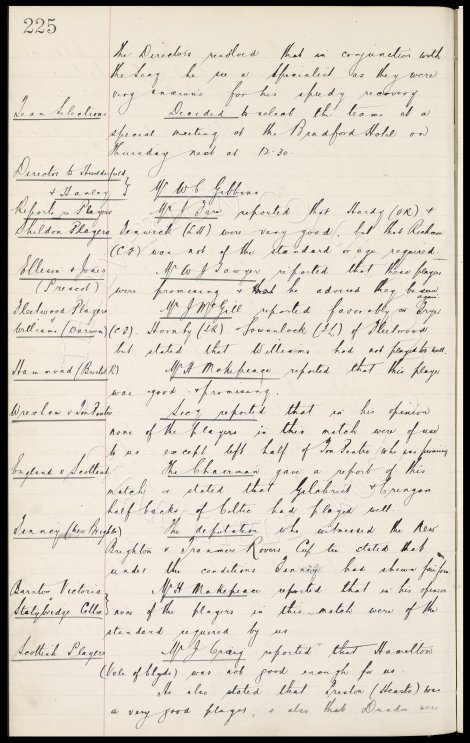 225
The Directors resolved that in conjunction with
the Secy he see a Specialist as they were
very anxious for his speedy recovery
Team Selections Decided to select the teams at a
special meeting at the Bradford Hotel on
Thursday next at 12.30.
Director to Huddersfield
& Hanley } Mr W C Gibbins
Reports re Players Mr J Fare reported that Hardy (OR) &
Sheldon Players Fenwick (LH) were very good, but that
(CF) was not of the standard or age required.
Elleson & Jones Mr W J Sawyer reported that these players
(Prescot) were promising & he advised they be seen
again
Fleetwood Players Mr J McGill reported favorably on
Williams (Darwen) (CF). Hornby (IR) (IL) of Fleetwood
but stated that Williams had not played too well.
Hammond ( Mr H Makepeace reported that this player
was good & promising.
Wrexham v Ton Pentre Secy reported that in his opinion
none of the players in this match were of use
to us except left half of Ton Pentre who was promising
England v Scotland The Chairman gave a report of this
match & stated that Gilchrist & Cringan
half backs of Celtic had played well.
Finney (New Brighton) The deputation who witnessed the New
Brighton v Tranmere Rovers Cup tie stated that
under the conditions Finney had shewn fair form
Barnton Victoria Mr H Makepeace reported that in his opinion
Stalybridge Celtic } none of the players in this match were of the
standard required by us.
Scottish Players Mr J Craig reported that Hamilton
(Vale of Clyde) was not good enough for us.
He also stated that Preston (Hearts) was
a very good player, & also that Dundee were